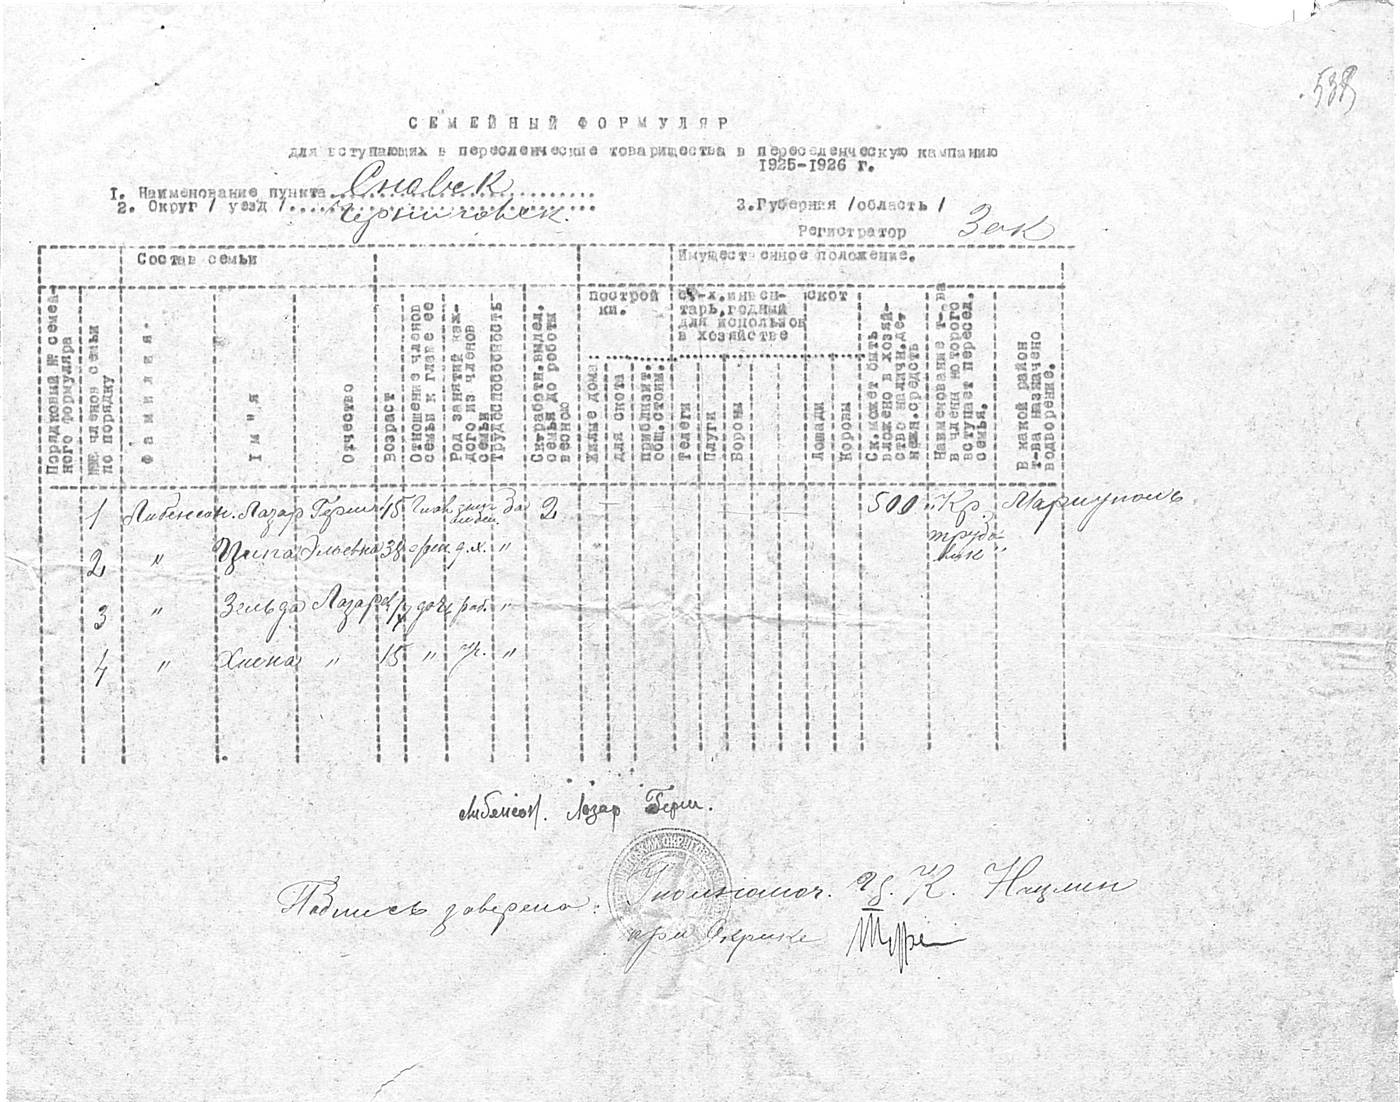 538
СЕМЕЙНЫЙ ФОРМУЛЯР
для вступающих в пересленческие товарищества в переселенческую кампанию
1925-1926 г.
1. Наименование пункта Сновск
2. Округ / уезд / Черниговск.
3. Губерная /область /
Регистратор Зак
Состав семьи
Имущественное положение.
Порядковый № семей-
ного формуляра
№№ членов семьи
по порядку
Фамилия.
Імъя
Отчество
Возраст
Отношение членов
семьи к главе ее
Род занятий каж-
дого из членов
семьи
Трудоспособность
Ск.работн.выдел.
семья до работы
весною
построй
ки.
Жилые дома
для скота
приблизит.
общ.стоим.
с.-х.инвен-
тарь,годный
для использов
в хозяйстве
Телеги
Плуги
Бороны
скот
Лошади
Коровы
Ск.может быть
вложено в хозяй-
ство наличн.де,
нежн.средств
Наименование т-ва
в члены которого
вступает пересел.
семья.
В какой район
т-ва назначено
водворение.
1 Либенсон. Лазар Герш. 45 Глав да 2 500 "Кр. Мариуполь
трудо
вик"
2 " Ципа Эльевна 38 д.х. "
3 " Зельда Лазар 17 дочь раб. "
4 " Хиена " 15 " уч. "
Либенсон. Лазар Герш.
Подпись заверена: Уполномоч. Ц. К. Нацмен
при Окрике